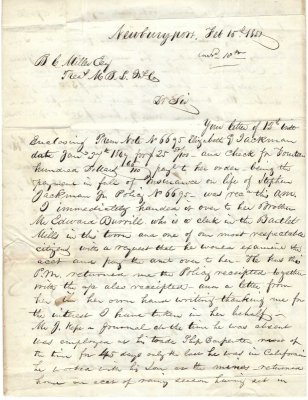 Newburyport, Feb 15th
B C Miller Esq
Dr Sir
Your letter of 13th
Enclosing Prem Note No 6695 Elizabeth G Jackman
date Jany for 25 and Check for
hundred Dollars pay to her order being the
payment in full of Insurance on life of Stephen
Jackman Jr Policy No 6695 was this
I immediately handed it over to her Brother
Mr Edward Burrill who is a clerk in the Bartlet
Mills in this town and one of our most respectable
citizens with a request that he would examine the
acct and pay the over to her. He has this
P.M. returned me the Policy receipted together
with the also receipted and a letter from
her in her own hand writing thanking me for
the interest I have taken in her behalf
Mr J. kept a Journal all the time he was absent
was employed at his trade Ship Carpenter most of
the time for 45 days only the he was in California
he worked with his son at the mines returned
home on acct of rainy season having set in